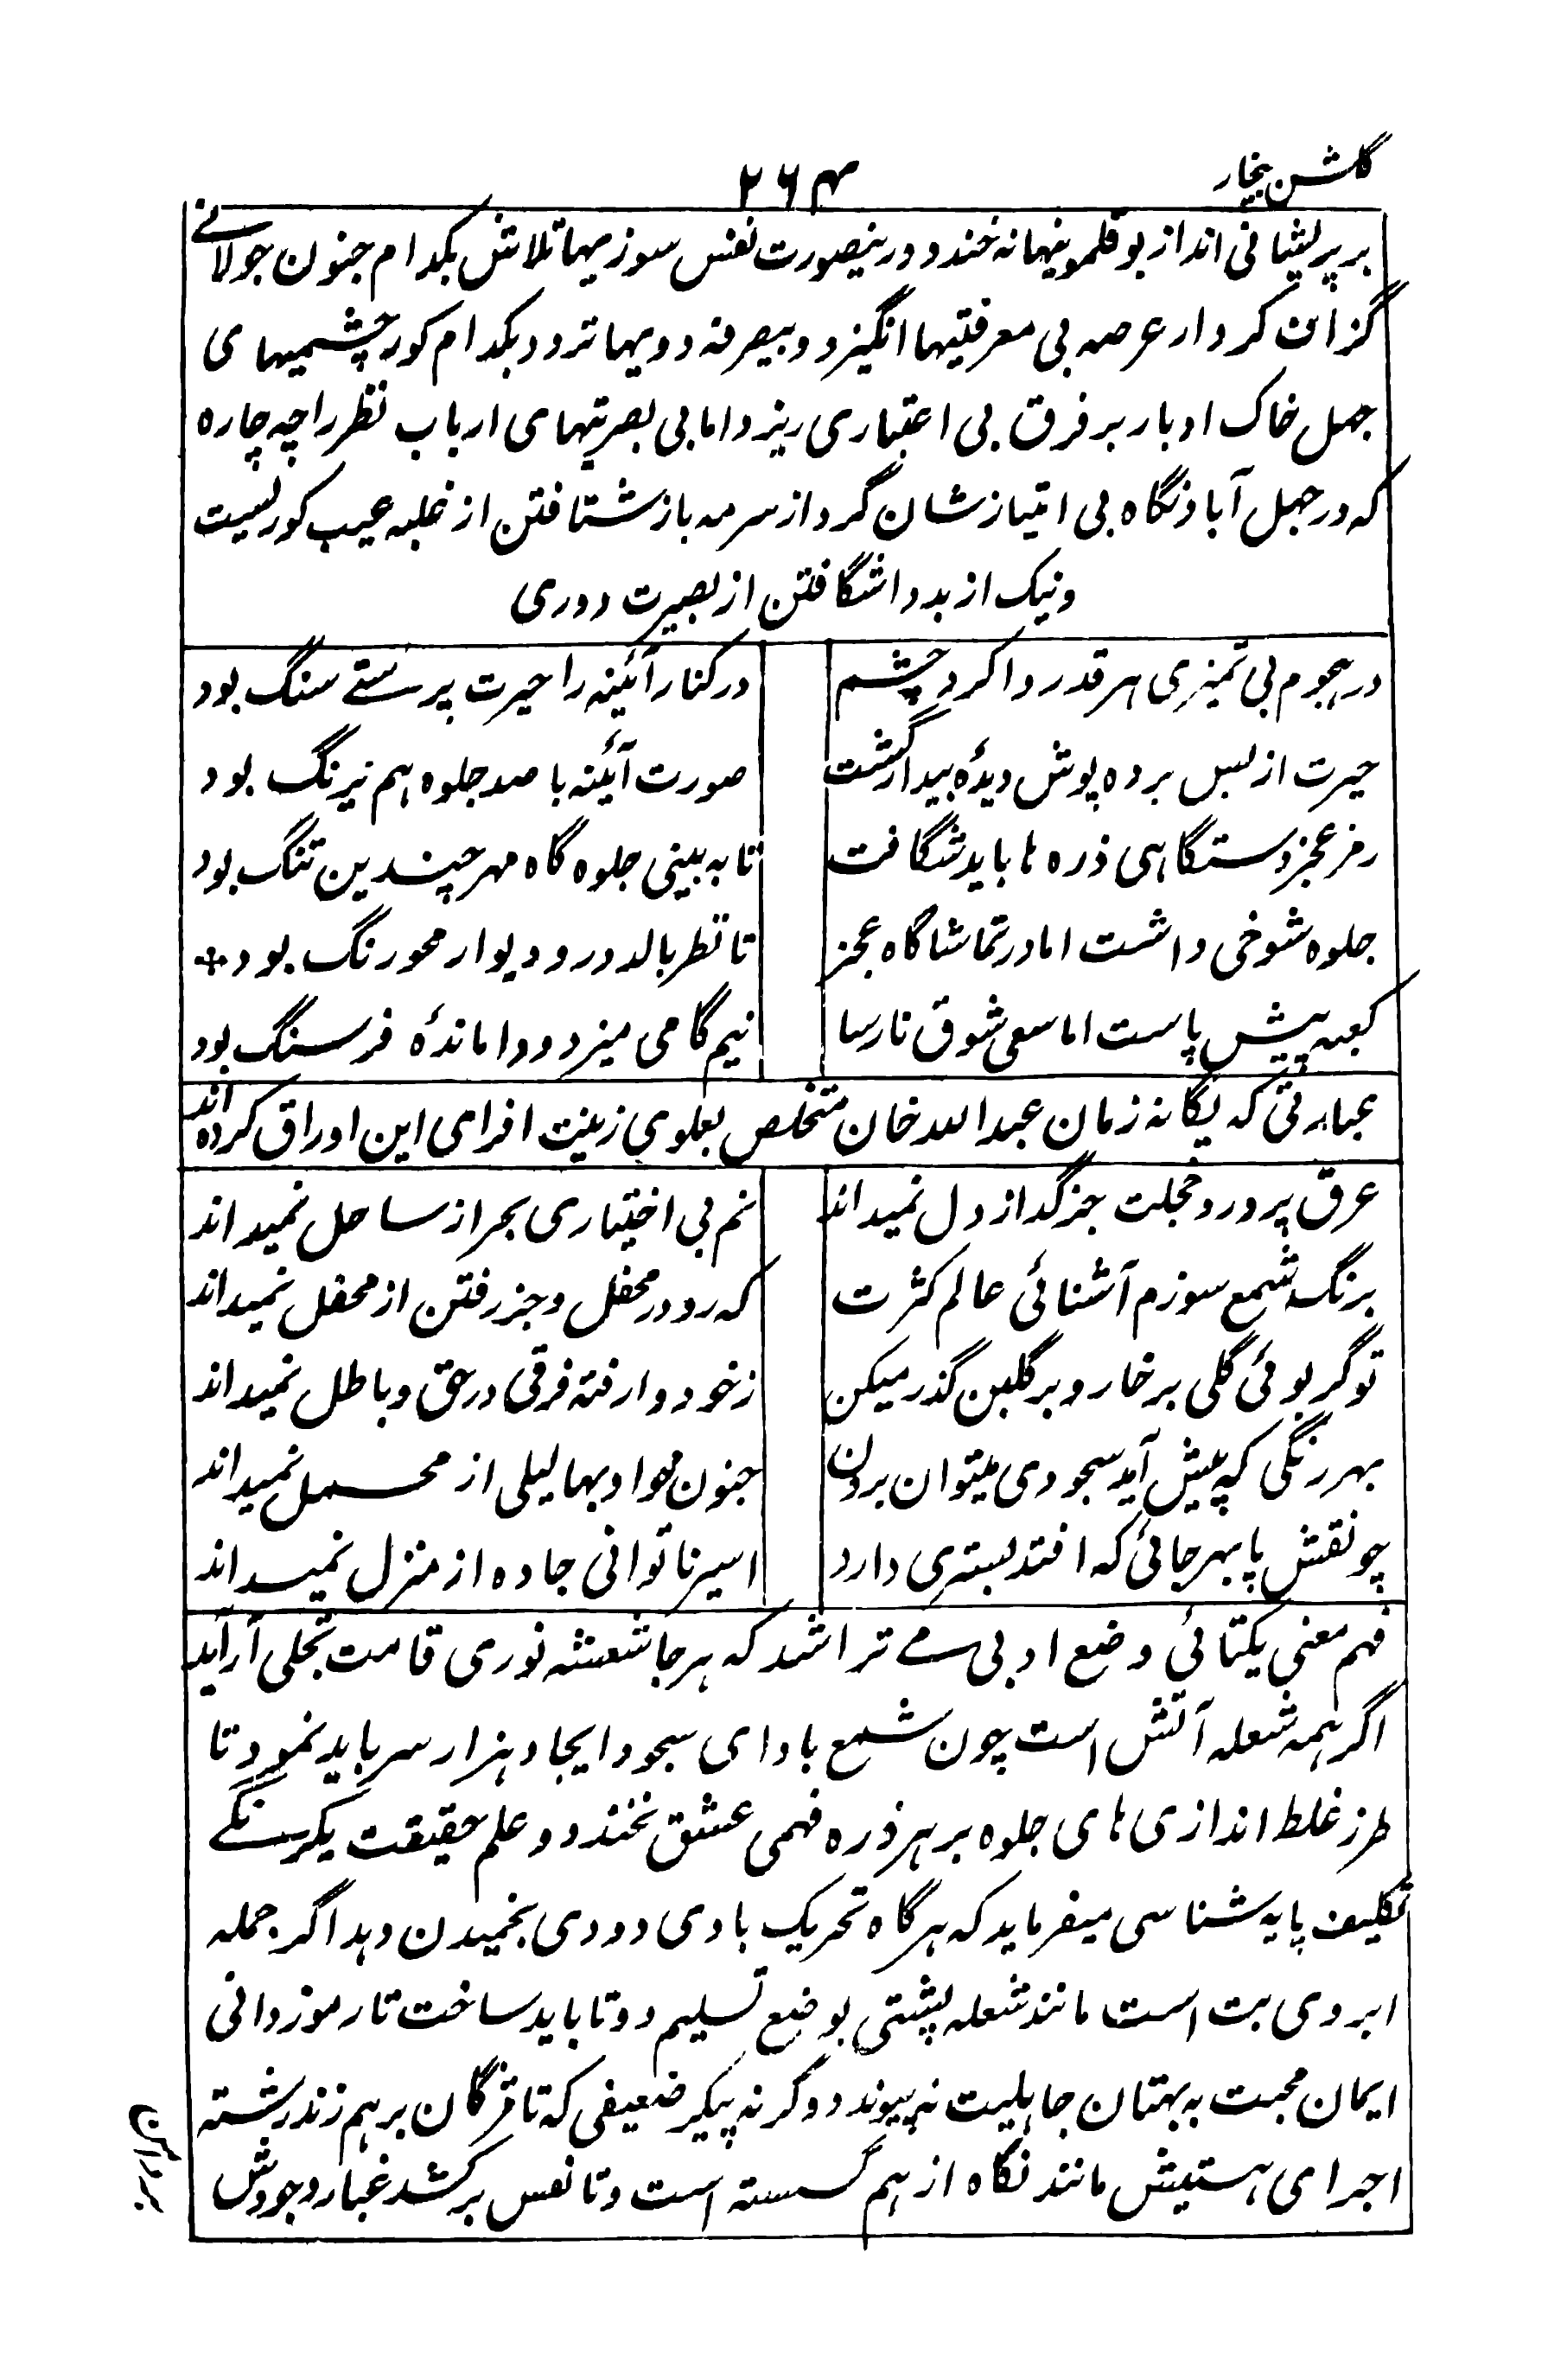 گلشن بیخار
۲۶۴
بر پریشانی انداز بوقلمونیهانه خندد و درینصورت نفس سوزیهاتلاش بکدام جنون جولانے
گزاف کردار عرصه بی معرفتیها انگیزد و بیصرفه دویها تردد بکدام کورچشمیهای
جهل خاک ادبار بر فرق بی اعتباری ریزد اما بی بصریتهای ارباب نظر را چه چاره
که در جهل آباد نگاه بی امتیازشان گرد از سرمه باز شتافتن از غلبه عیب کوریست
و نیک از بد واشگافتن از بصیرت دوری
در هجوم بی تمیزی هر قدر وا کرد چشم
در کنار آئینه را حیرت پرستے سنگ بود
حیرت از بس پرده پوش دیدۀ بیدار گشت
صورت آئینه با صد جلوه هم نیرنگ بود
رمز عجز دستگاهی ذره ها باید شگافت
تا به بینی جلوه گاه مهر چندین تنگ بود
جلوه شوخی داشت اما در تماشا گاه عجز
تا نظر بالد در و دیوار محو رنگ بود
کعبه پیش پاست اما سعی شوق نارسا
نیم گامی میزد و واماندۀ فرسنگ بود
عبارتی که یگانه زمان عبدالله خان متخلص بعلوی زینت افزای این اوراق کرده اند
عرق پرورد خجلت جز گداز دل نمیداند
نم بی اختیاری بحر از ساحل نمیداند
برنگ شمع سوزم آشنائی عالم کثرت
که رو در محفل و جز رفتن از محفل نمیداند
تو گر بوئی گلی بر خار و بر گلبن گذر میکن
ز خود وارفته فرقی در حق و باطل نمیداند
بهر رنگی که پیش آید سجودی میتوان بردن
جنون مواد بها لیلی از محمل نمیداند
چو نقش پا بهر جائی که افتد بستری دارد
اسیر ناتوانی جاده از منزل نمیداند
فهم معنی یکتائی وضع ادبی مے تراشد که هر جا شعشه نوری قامت تجلی آراید
اگر همه شعله آتش است چون شمع بادای سجود ایجاد هزار سر باید نمود تا
طرز غلط اندازی های جلوه بر هر ذره فهمی عشق نخندد و علم حقیقت یکرنگے
تکلیف پایه شناسی میفرماید که هرگاه تحریک بادی دودی بخمیدن دهد اگر جمله
ابروی بت است مانند شعله پشتی بوضع تسلیم دوتا باید ساخت تا رموز دانی
ایمان محبت به بهتان جاهلیت نه پیوندد و گرنه پیکر ضعیفی که تا مژگان برهم زند رشته
اجزای هستیش مانند نگاه از هم گسسته است و تا نفس برکشد غبار وجودش